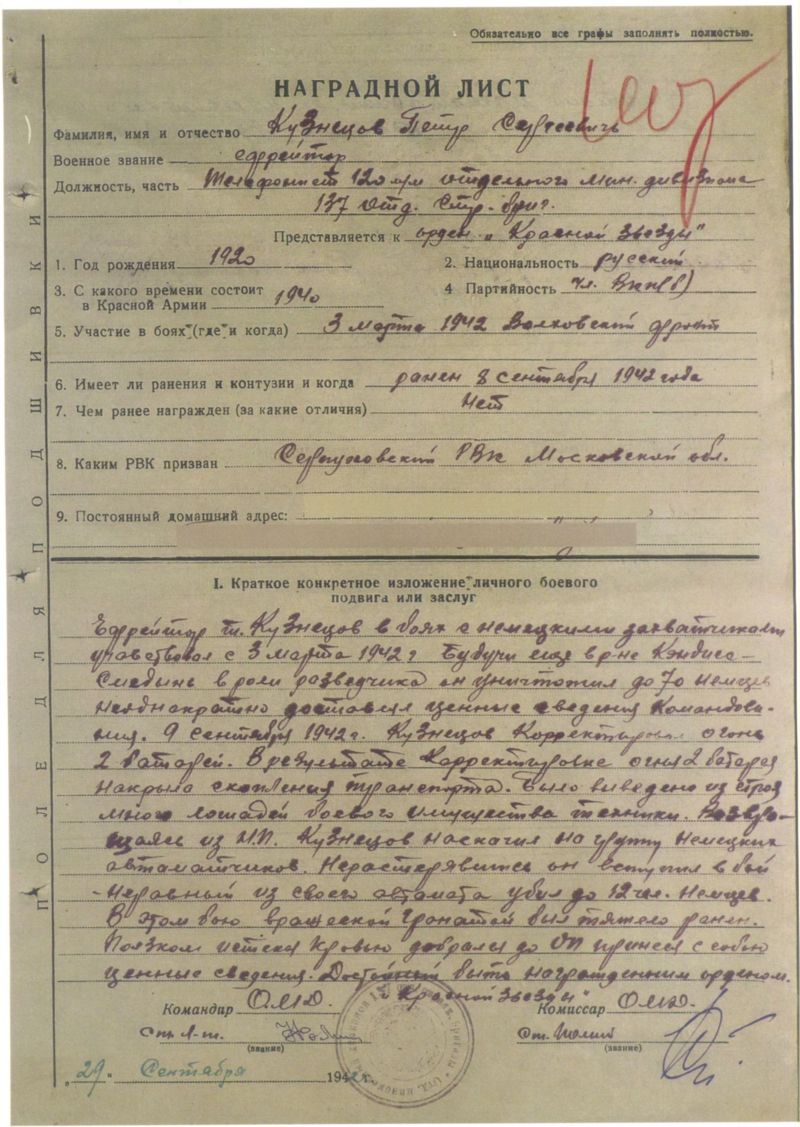 Обязательно все графы заполнять полностью.
НАГРАДНОЙ ЛИСТ
Фамилия, имя и отчество Кузнецов Петр Сергеевичъ
Военное звание ефрейтор
Должность, часть Телефонист 120 м/м отдельного мин. дивизиона
137 отд. Стр. бриг.
Представляется к орден „Красной звезды"
1. Год рождения 1920 2. Национальность русский
3. С какого времени состоит в Красной Армии 1940 4 Партийность чл. ВКП(в)
5. Участие в боях (где и когда) 3 марта 1942 Волховский фронт
6. Имеет ли ранения и контузии и когда ранен 8 сентября 1942 года
7. Чем ранее награжден (за какие отличия) Нет
8. Каким РВК призван Серпуховский РВК Московской обл.
9. Постоянный домашний адрес:
I. Краткое конкретное изложение личного боевого
подвига или заслуг
Ефрейтор т. Кузнецов в боях с немецкими захватчиками
учавствовал с 3 марта 1942 г Будучи еще в р-не
Смердынь в роли разведчика он уничтожил до 70 немцев
неоднакратно доставлял ценные сведения Командова-
ния. 9 сентября 1942 г. Кузнецов Корректировал огонь
2 батареи. В результате Корректировке огня 2 батарея
накрыла скопления транспорта. Было выведено из строя
много лошадей боевого имущества техники. Возвра-
щаясь из Н.П. Кузнецов наскачил на группу Немецких
автаматчиков. Нерастерявшись он вступил в бой
неравный из своего автомата убил до 12 чел. Немцев.
В этом бою вражеской Гранатой был тяжело ранен.
Ползком истекая Кровью добрался до ОП принеся с собою
ценные сведения. Достойный быть награжденним орденом.
„Красной звезды"
Командир ОМД Комиссар ОМД.
Стр. Л-т. Ст. Полит
(звание) (звание)
„29" Сентября 1942 г.
ПОЛЕ ДЛЯ ПОДШИВКИ